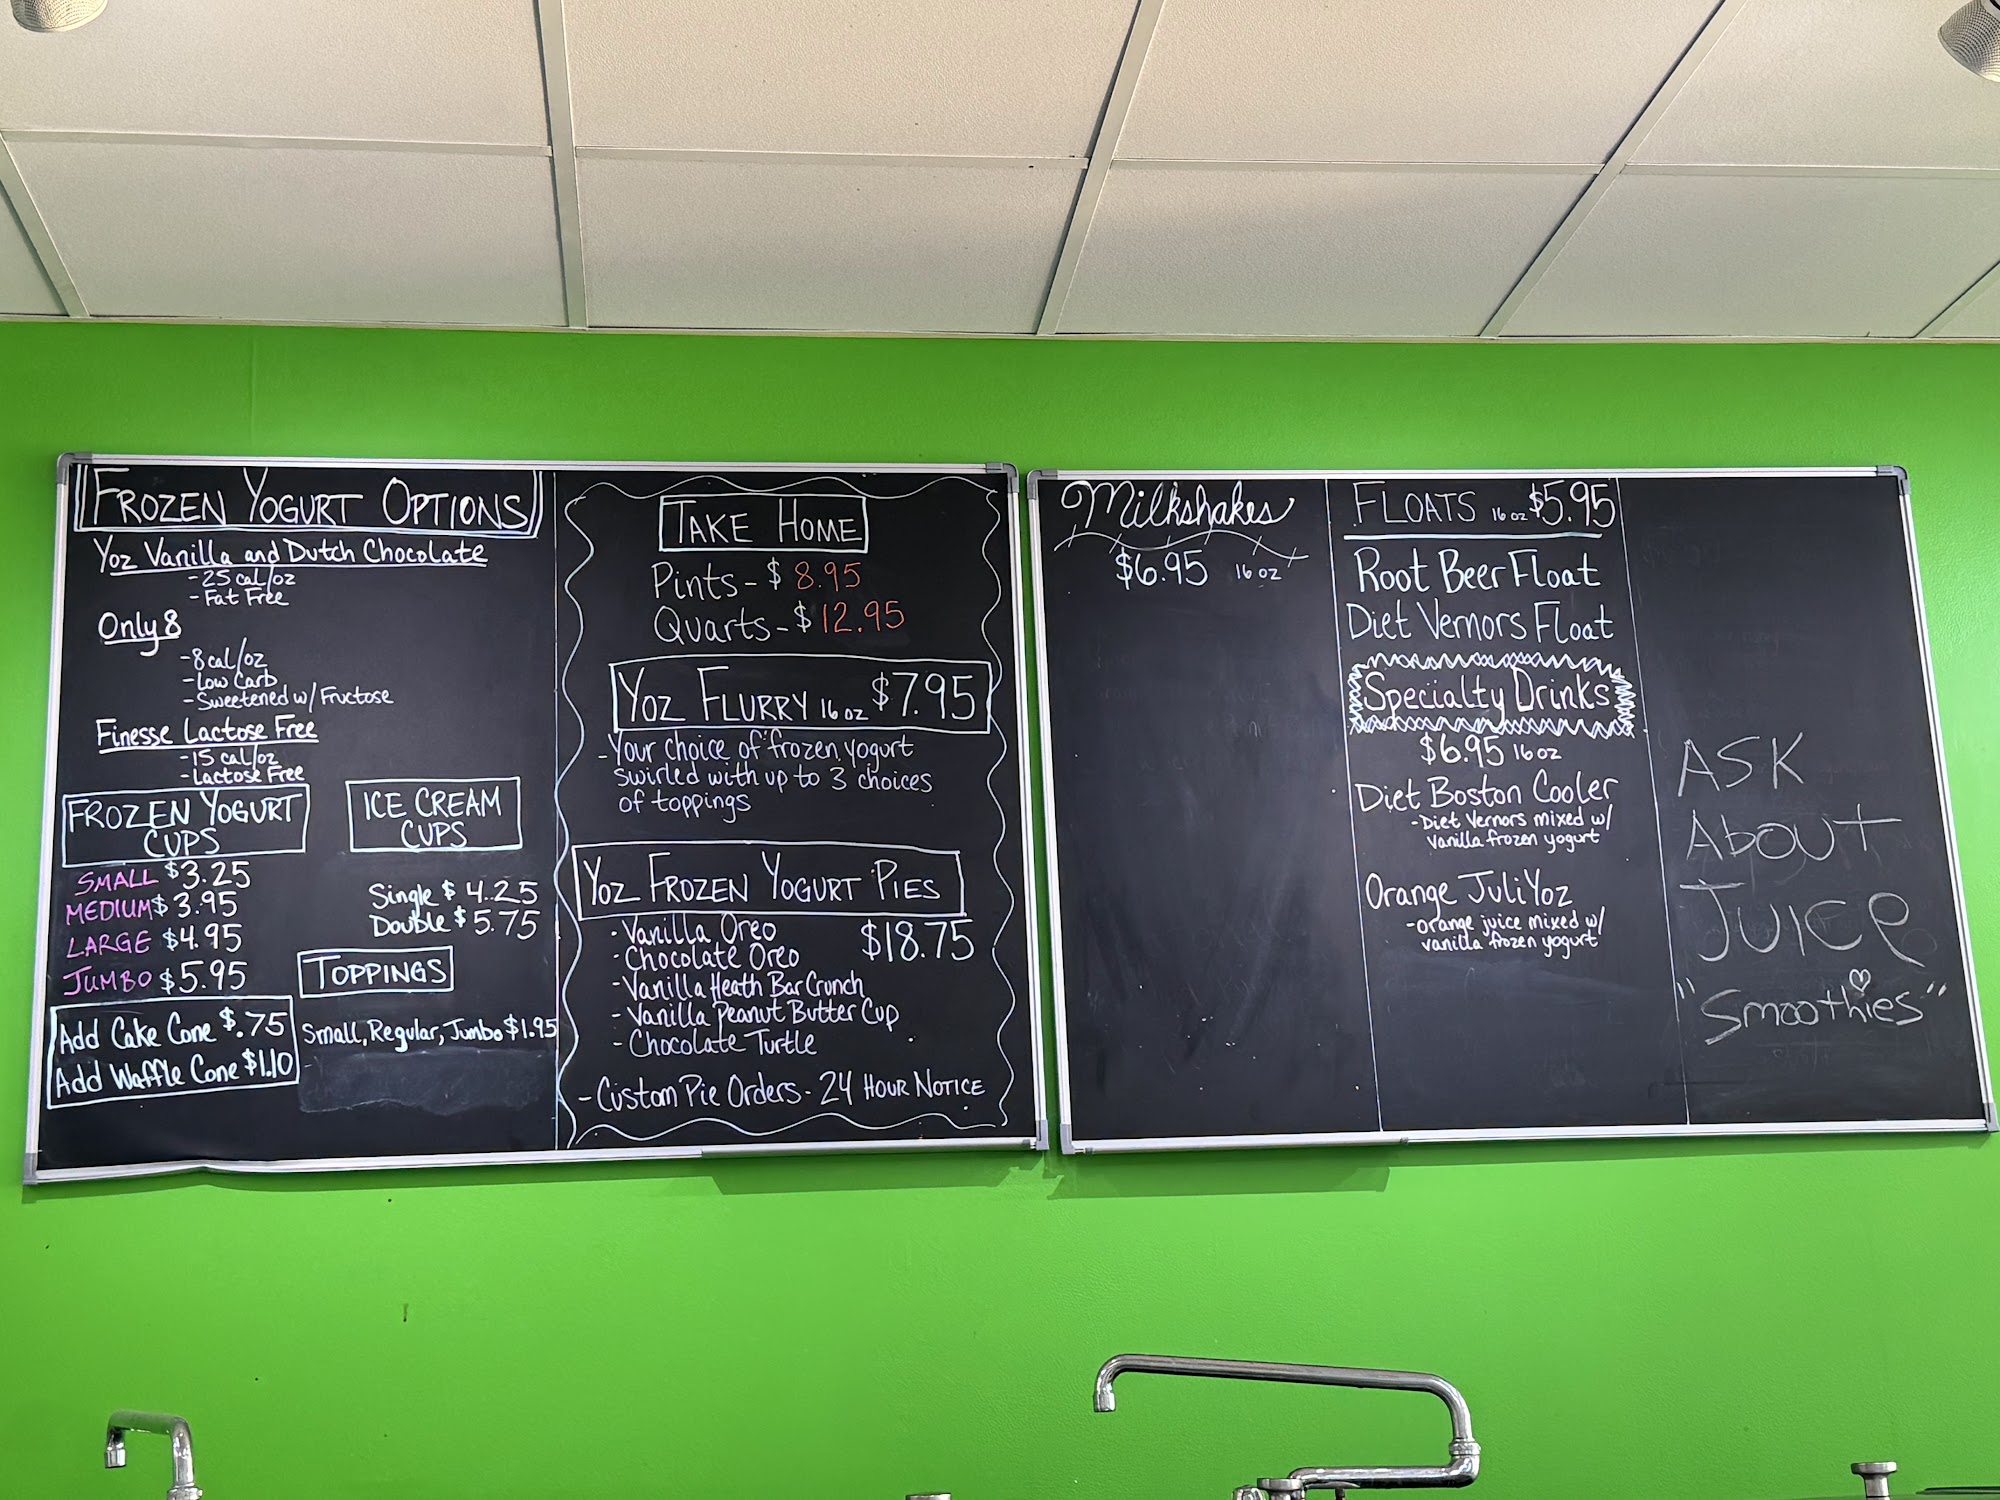 FROZEN YOGURT OPTIONS
Yoz Vanilla and Dutch Chocolate
-25 cal/oz
- Fat Free
Only 8
-8 cal/oz
-Low Carb
-Sweetened w/ Fructose
Finesse Lactose Free
-15 cal/oz
-Lactose Free
FROZEN YOGURT
CUPS
SMALL $3.25
MEDIUM $3.95
LARGE $4.95
JUMBO $5.95
Add Cake Cone $.75
Add Waffle Cone $1.10
ICE CREAM
CUPS
Single $4.25
Double $5.75
TOPPINGS
Small, Regular, Jumbo $1.95
TAKE HOME
Pints - $8.95
Quarts - $12.95
YOZ FLURRY 16 oz $7.95
-Your choice of frozen yogurt
swirled with up to 3 choices
of toppings
YOZ FROZEN YOGURT PIES
$18.75
- Vanilla Oreo
- Chocolate Oreo
- Vanilla Heath Bar Crunch
- Vanilla Peanut Butter Cup
- Chocolate Turtle
- Custom Pie Orders - 24 HOUR NOTICE
Milkshakes
$6.95 16 oz
FLOATS 16 oz $5.95
Root Beer Float
Diet Vernors Float
Specialty Drinks
$6.95 16 oz
Diet Boston Cooler
-Diet Vernors mixed w/
Vanilla frozen yogurt
Orange JuliYoz
-orange juice mixed w/
vanilla frozen yogurt
ASK
ABOUT
JUICE
"Smoothies"